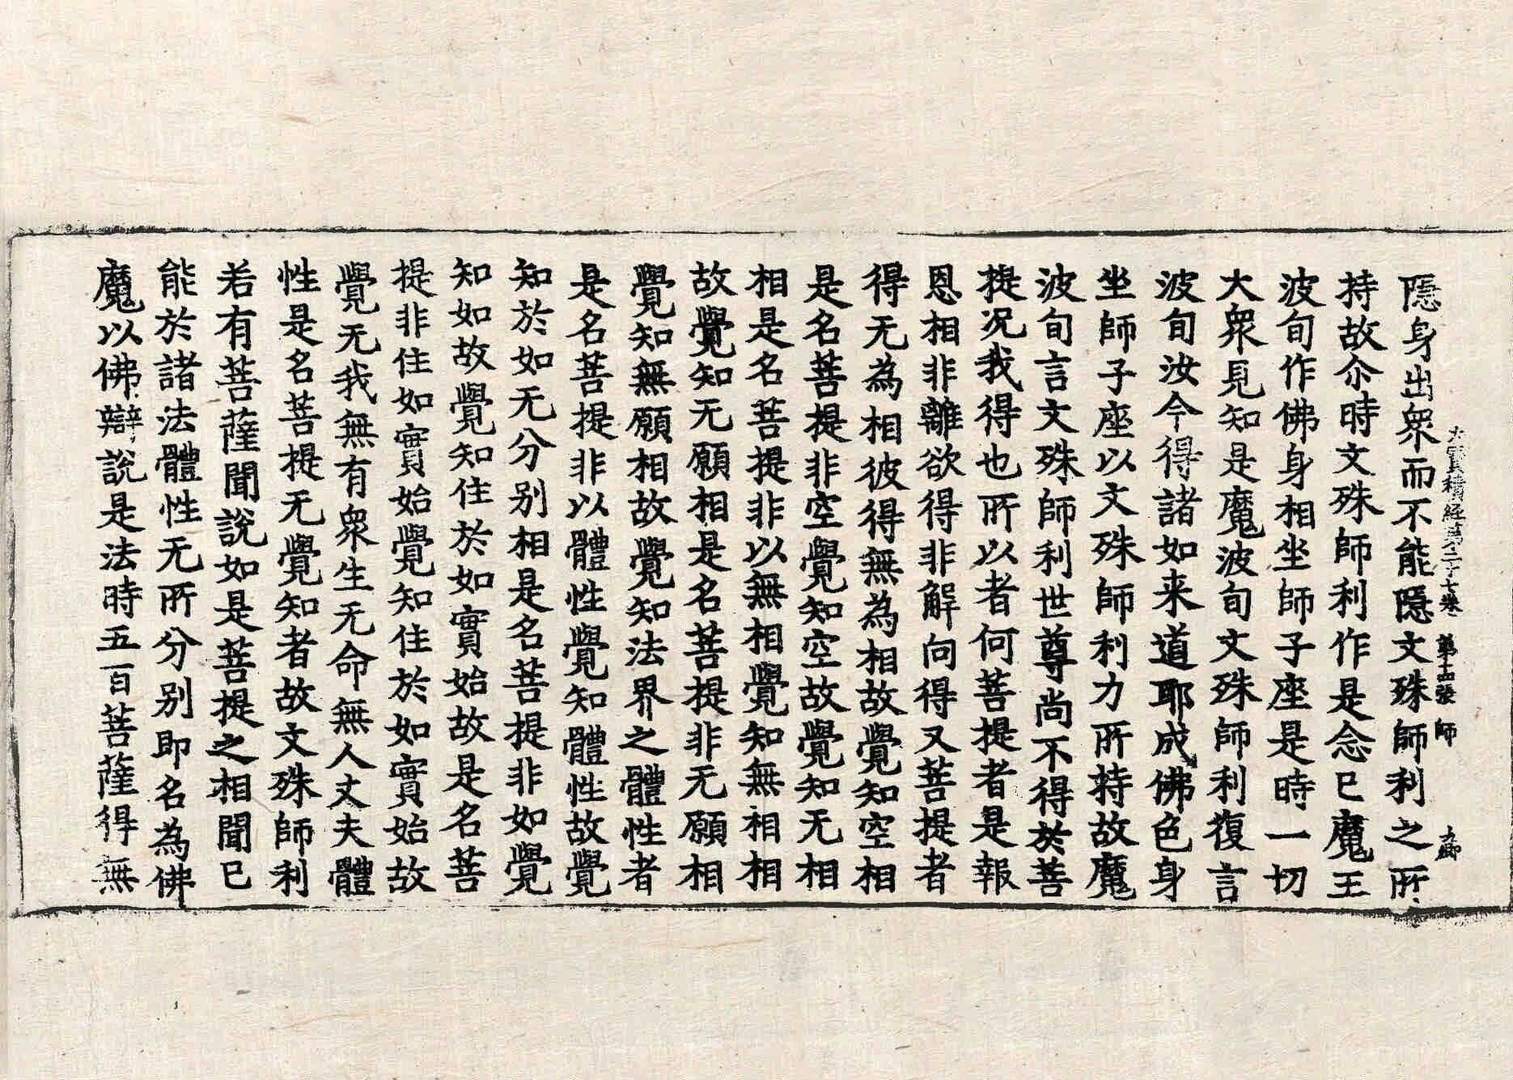 大寳積經第二十七卷 第十五張 師
隱身出衆而不能隱文殊師利之所
持故尒時文殊師利作是念已魔王
波旬作佛身相坐師子座是時一切
大衆見知是魔波旬文殊師利復言
波旬汝今得諸如来道耶成佛色身
坐師子座以文殊師利力所持故魔
波旬言文殊師利世尊尚不得於菩
提況我得也所以者何菩提者是報
恩相非離欲得非解向得又菩提者
得无為相彼得無為相故覺知空相
是名菩提非空覺知空故覺知无相
相是名菩提非以無相覺知無相相
故覺知无願相是名菩提非无願相
覺知無願相故覺知法界之體性者
是名菩提非以體性覺知體性故覺
知於如无分別相是名菩提非如覺
知如故覺知住於如實始故是名菩
提非住如實始覺知住於如實始故
覺无我無有衆生无命無人丈夫體
性是名菩提无覺知者故文殊師利
若有菩薩聞說如是菩提之相聞已
能於諸法體性无所分別即名為佛
魔以佛辯說是法時五百菩薩得無